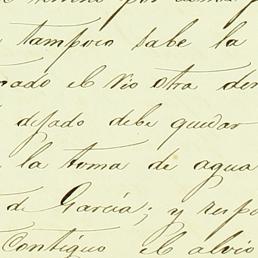 tampoco sabe la
rado el rio otra der
dejado debe quedar
la toma de agua
de García; y respe
Contiguo el alvio